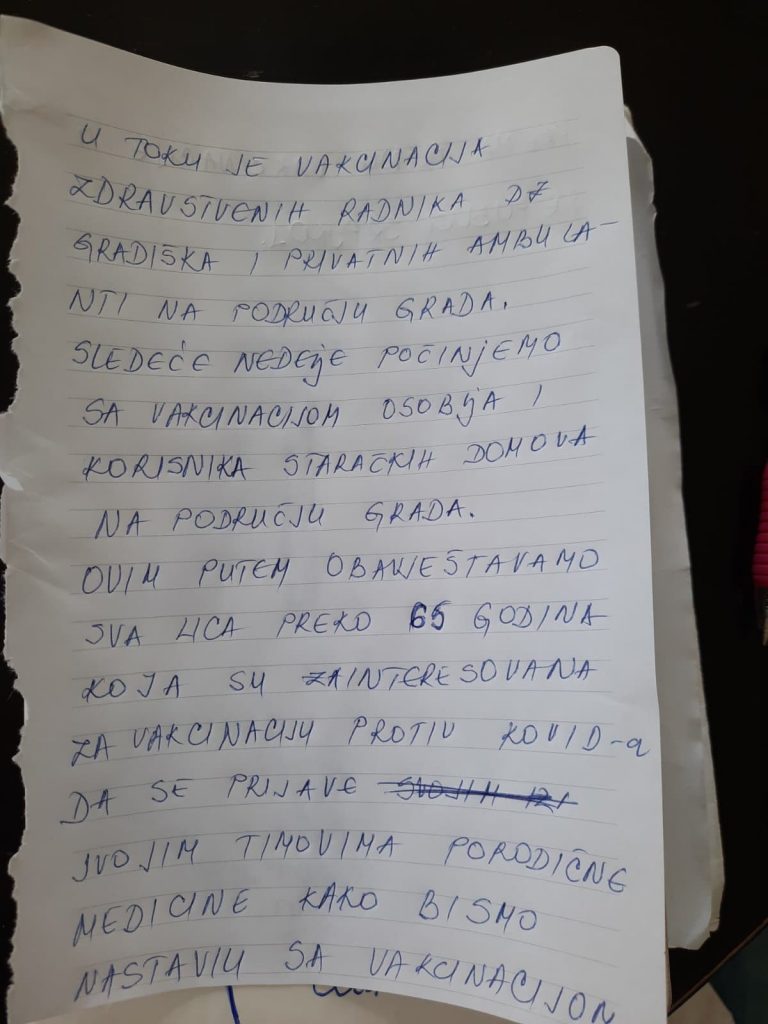 U TOKU JE VAKCINACIJA
ZDRAVSTVENIH RADNIKA DZ
GRADIŠKA I PRIVATNIH AMBULA-
NTI NA PODRUČJU GRADA.
SLEDEĆE NEDElJE POČINjEMO
SA VAKCINACIJOM OSOBlJA I
KORISNIKA STARAČKIH DOMOVA
NA PODRUČJU GRADA.
OVIM PUTEM OBAVJEŠTAVAMO
SVA LICA PREKO 65 GODINA
KOJA SU ZAINTERESOVANA
ZA VAKCINACIJU PROTIV KOVID-a
DA SE PRIJAVE
SVOJIM TIMOVIMA PORODIČNE
MEDICINE KAKO BISMO
NASTAVILI SA VAKCINACIJOM